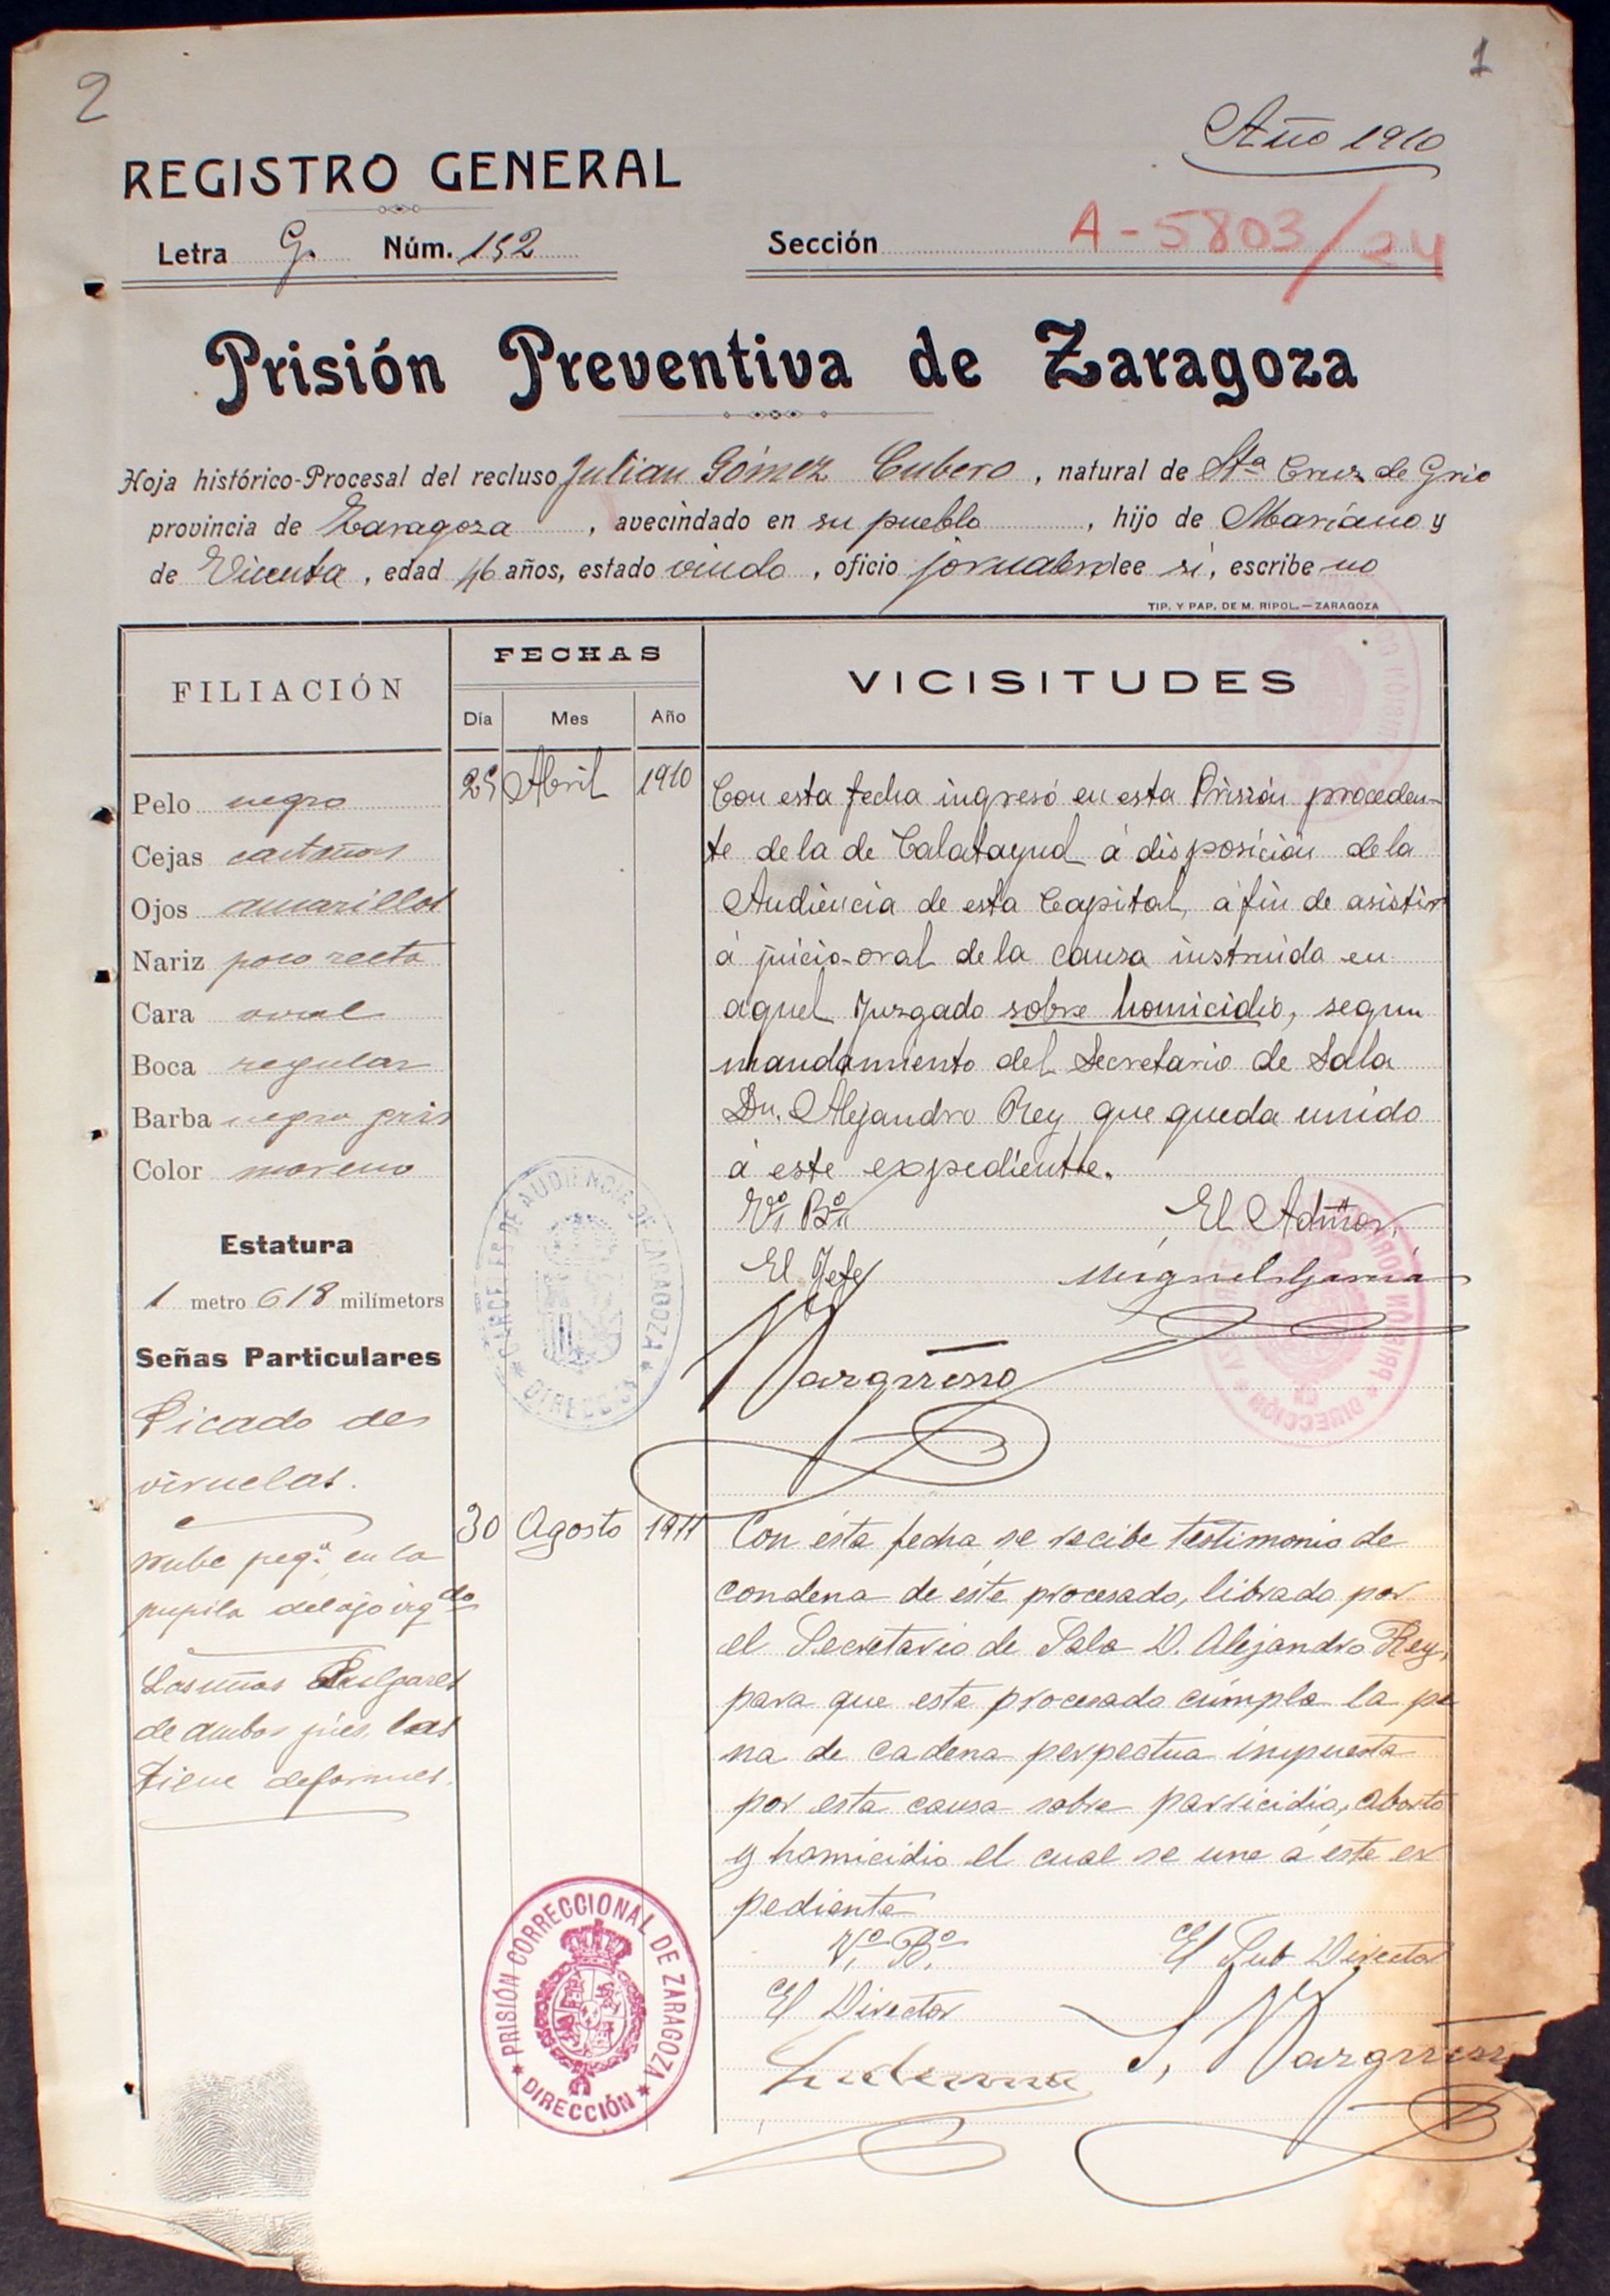 2
1
Año 1910
REGISTRO GENERAL
Letra G. Núm. 152
Sección A-5803/24
Prisión Preventiva de Zaragoza
Hoja histórico-Procesal del recluso Julian Gómez Cubero, natural de Sta Cruz de Grio
provincia de Zaragoza, avecindado en su pueblo, hijo de Mariano y
de Vicenta, edad 46 años, estado viudo, oficio jornalero lee si, escribe no
TIP. Y PAP. DE M. RIPOL.—ZARAGOZA
FILIACIÓN
FECHAS
Día Mes Año
VICISITUDES
Pelo negro
Cejas castañas
Ojos amarillos
Nariz poco recta
Cara oval
Boca regular
Barba negra gris
Color moreno
Estatura
1 metro 618 milímetors
Señas Particulares
Picado de
viruelas.
nube peqª. en la
pupila del ojo izqdo
Las uñas Pulgares
de ambos pies, las
tiene deformes.
25 Abril 1910
Con esta fecha ingresó en esta Prisión proceden-
te de la de Calatayud á disposición de la
Audiencia de esta Capital, á fin de asistir
á juicio-oral de la causa instruida en
aquel Juzgado sobre homicidio, segun
mandamiento del Secretario de Sala
Dn. Alejandro Rey que queda unido
á este expediente.
Vº. Bº.
El Admor.
El Jefe
Miguel García
CARCELES DE AUDIENCIA DE ZARAGOZA
DIRECCIÓN
30 Agosto 1911
Con ésta fecha se recibe testimonio de
condena de este procesado, librado por
el Secretario de Sala D. Alejandro Rey,
para que este procesado cúmpla la pe
na de cadena perpectua impuesta
por esta causa sobre parricidio, aborto
y homicidio el cual se une á este ex
pediente
Vº. Bº.
El Sub Director
El Director
PRISIÓN CORRECCIONAL DE ZARAGOZA
DIRECCIÓN